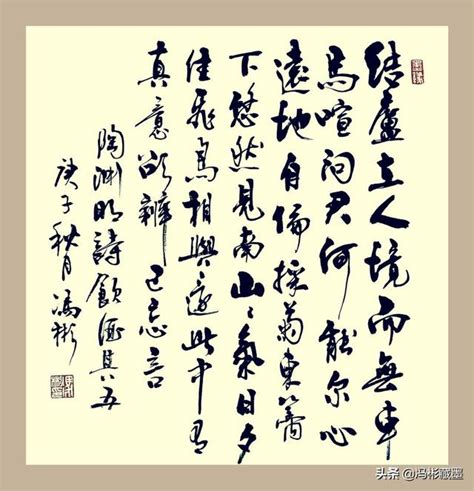 結廬在人境而無車
馬喧問君何能尔心
遠地自偏採菊東籬
下悠然見南山〻氣日夕
佳飛鳥相與還此中有
真意欲辨已忘言
陶渊明詩飲酒其五
庚子秋月馮彬
头条 @冯彬藏墨